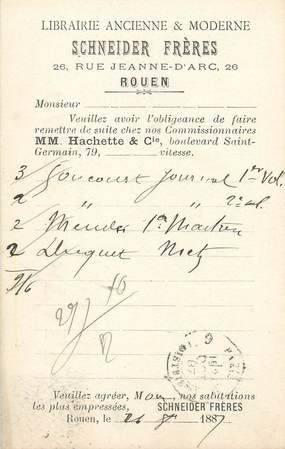 LIBRAIRIE ANCIENNE & MODERNE
SCHNEIDER FRÈRES
26, RUE JEANNE-D'ARC, 26
ROUEN
Monsieur
Veuillez avoir l'obligeance de faire
remettre de suite chez nos Commissionnaires
MM. Hachette & Cie, boulevard Saint-
Germain, 79, vitesse.
3 Goncourt Journal 1er Vol.
2 " " 2e vol.
2 Mendès 1a
2
Veuillez agréer, M nos salutations
les plus empressées, SCHNEIDER FRÈRES
Rouen, le 1887